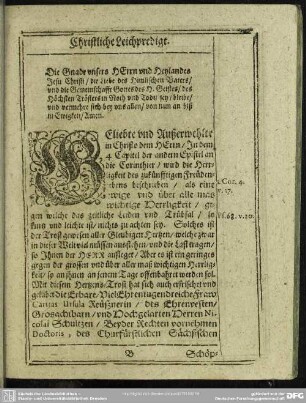 Christliche Leichpredigt.
Die Gnade unsers HErrn und Heylandes
Jesu Christi / die Liebe des Himlischen Vaters /
und die Gemeinschafft Gottes des H. Geistes / des
Höchsten Trösters in Noth und Todt sey / bleibe /
und vermehre sich bey uns allen / von nun an biß
in Ewigkeit / Amen.
Geliebte und Außerwehlte
in Christo dem HErrn / In dem
4 Capitel der andern Epistel an
die Corinther / wird die Herr-
ligkeit des zukünfftigen Freuden-
lebens beschrieben / als eine
ewige und über alle maß
wichtige Herrligkeit / ge-
gen welche das zeitliche Leiden und Trübsal / so
kurtz und leichte ist / nichts zu achten sey. Solches ist
der Trost gewesen aller Gleubigen Hertzen / welche zwar
in dieser Welt viel müssen ausstehen / und die Last tragen /
so Ihnen der HERR aufleget / Aber es ist ein geringes
gegen der grossen und über alle maß wichtigen Herrlig-
keit / so an ihnen an jenem Tage offenbahret werden sol.
Mit diesem Hertzens-Trost hat sich auch erfrischet und
gelabet die Erbare / Viel Ehrentugendreiche Fraw
Caritas Ursula
des Ehrenvesten /
Großachtbarn / und Hochgelarten Herren Ni-
colai Schultzen / Beyder Rechten vornehmen
Doctoris, des Churfürstlichen Sächsischen
B
Schöp-
2. Cor. 4.
v. 17.
Ps. 68. v. 20.